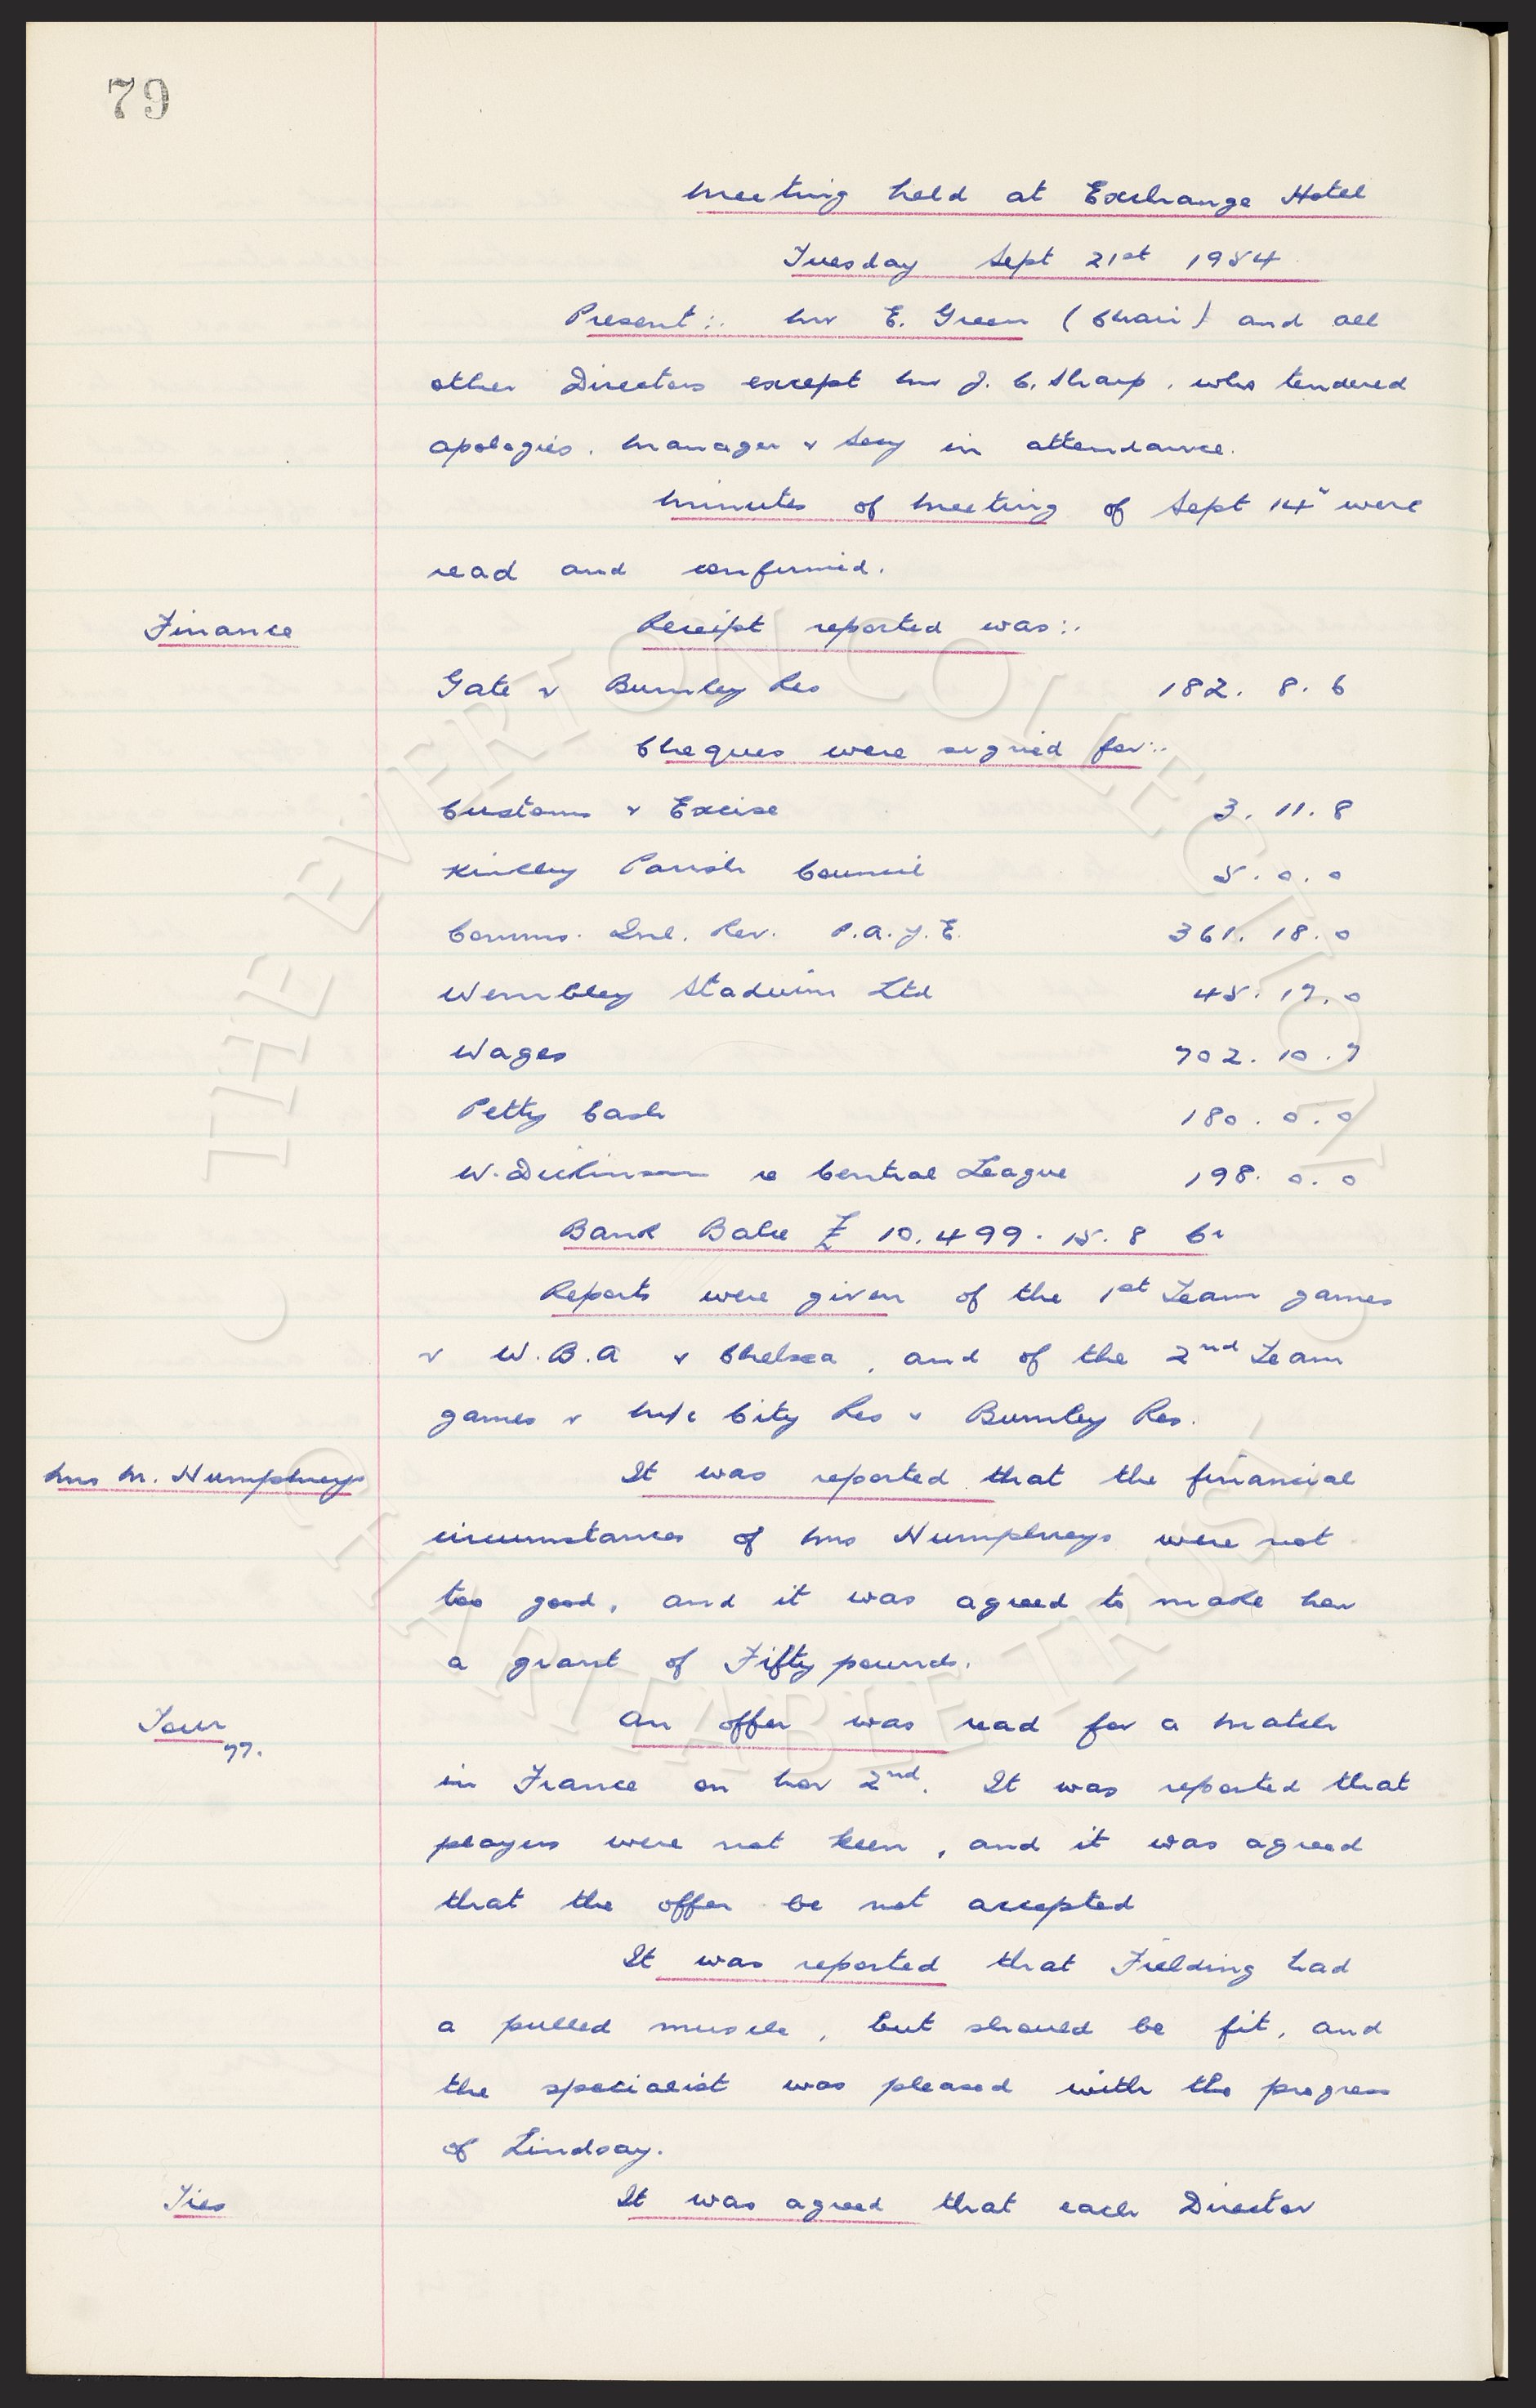 79
Meeting held at Exchange Hotel
Tuesday Sept 21st 1954
Present:. Mr E. Green (Chair) and all
other Directors except Mr J. C. Sharp, who tendered
apologies. Manager & Secy in attendance.
Minutes of Meeting of Sept 14" were
read and confirmed.
Finance
Receipt reported was:.
Gate v Burnley Res 182. 8. 6
Cheques were signed for:.
Customs & Excise 3. 11. 8
Kirkby Parish Council 5. 0. 0
Comms. Inl. Rev. P.A.Y.E. 361. 18. 0
Wembley Stadium Ltd 45. 17. 0
Wages 702. 10. 7
Petty Cash 180. 0. 0
W. Dickinson re Central League 198. 0. 0
Bank Balce £ 10.499. 15. 8 Cr
Reports were given of the 1st Team games
v W.B.A & Chelsea, and of the 2nd Team
games v M/c City Res & Burnley Res.
Mrs M. Humphreys
It was reported that the financial
circumstances of Mrs Humphreys were not
too good, and it was agreed to make her
a grant of Fifty pounds.
Tour
77.
An offer was read for a match
in France on Nov 2nd. It was reported that
players were not keen, and it was agreed
that the offer be not accepted
It was reported that Fielding had
a pulled muscle, but should be fit, and
the specialist was pleased with the progress
of Lindsay.
Ties
It was agreed that each Director
THE EVERTON COLLECTION
CHARITABLE TRUST